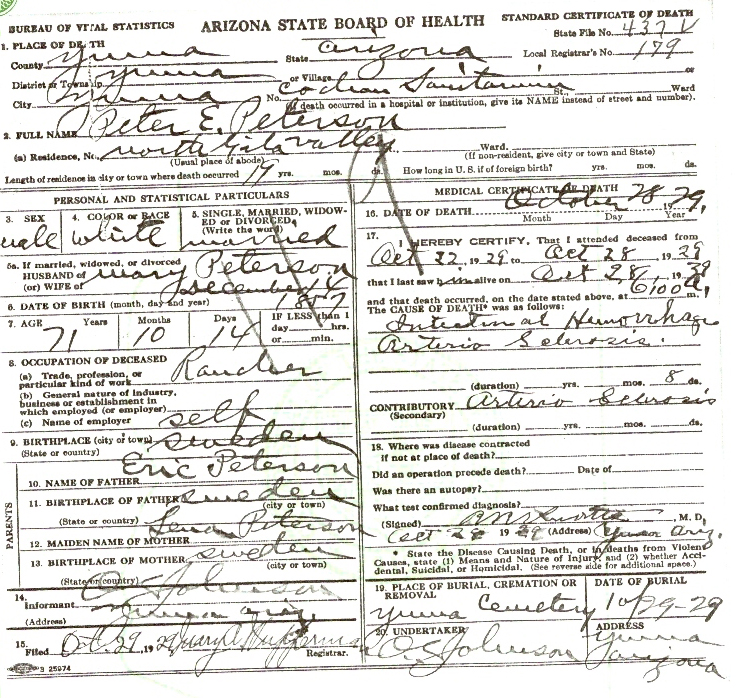 BUREAU OF VITAL STATISTICS
ARIZONA STATE BOARD OF HEALTH
STANDARD CERTIFICATE OF DEATH
State File No. 437 V
1. PLACE OF DEATH
County Yuma State Arizona Local Registrar's No. 179
District or Township Yuma or Village or
City Yuma No. Cochran Sanitarium St., Ward
(If death occurred in a hospital or institution, give its NAME instead of street and number).
2. FULL NAME Peter E. Peterson
(a) Residence, No. North Gila Valley Ward.
(Usual place of abode) (If non-resident, give city or town and State)
Length of residence in city or town where death occurred 19 yrs. mos. ds. How long in U. S. if of foreign birth? yrs. mos. ds.
PERSONAL AND STATISTICAL PARTICULARS
3. SEX male
4. COLOR or RACE White
5. SINGLE, MARRIED, WIDOWED or DIVORCED, (Write the word) married
5a. If married, widowed, or divorced
HUSBAND of Mary Peterson
(or) WIFE of
6. DATE OF BIRTH (month, day and year) December 14 1857
7. AGE 71 Years 10 Months 14 Days IF LESS than 1 day hrs. or min.
8. OCCUPATION OF DECEASED
(a) Trade, profession, or particular kind of work Rancher
(b) General nature of industry, business or establishment in which employed (or employer)
(c) Name of employer self
9. BIRTHPLACE (city or town) Sweden
(State or country)
PARENTS
10. NAME OF FATHER Eric Peterson
11. BIRTHPLACE OF FATHER Sweden
(city or town)
(State or country)
12. MAIDEN NAME OF MOTHER Lena Peterson
13. BIRTHPLACE OF MOTHER Sweden
(city or town)
(State or country)
14. Informant O. S. Johnson
(Address) Yuma Ariz.
15. Filed Oct. 29, 1929 Mary Registrar.
3 25974
MEDICAL CERTIFICATE OF DEATH
16. DATE OF DEATH October 28 1929,
Month Day Year
17. I HEREBY CERTIFY, That I attended deceased from
Oct 22, 1929 to Oct 28, 1929
that I last saw him alive on Oct 28, 1929
and that death occurred, on the date stated above, at 6:00 a. m.
The CAUSE OF DEATH* was as follows:
Intestinal Hemorrhage
Arterio Sclerosis.
(duration) yrs. mos. 8 ds.
CONTRIBUTORY Arterio Sclerosis
(Secondary)
(duration) yrs. mos. ds.
18. Where was disease contracted
if not at place of death?
Did an operation precede death? Date of
Was there an autopsy?
What test confirmed diagnosis?
(Signed) M. D.
Oct 28 1929 (Address) Yuma Ariz.
* State the Disease Causing Death, or in deaths from Violent
Causes, state (1) Means and Nature of Injury, and (2) whether Acci-
dental, Suicidal, or Homicidal. (See reverse side for additional space.)
19. PLACE OF BURIAL, CREMATION OR REMOVAL
Yuma Cemetery
DATE OF BURIAL
10/29-29
20. UNDERTAKER
O. S. Johnson
ADDRESS
Yuma Arizona